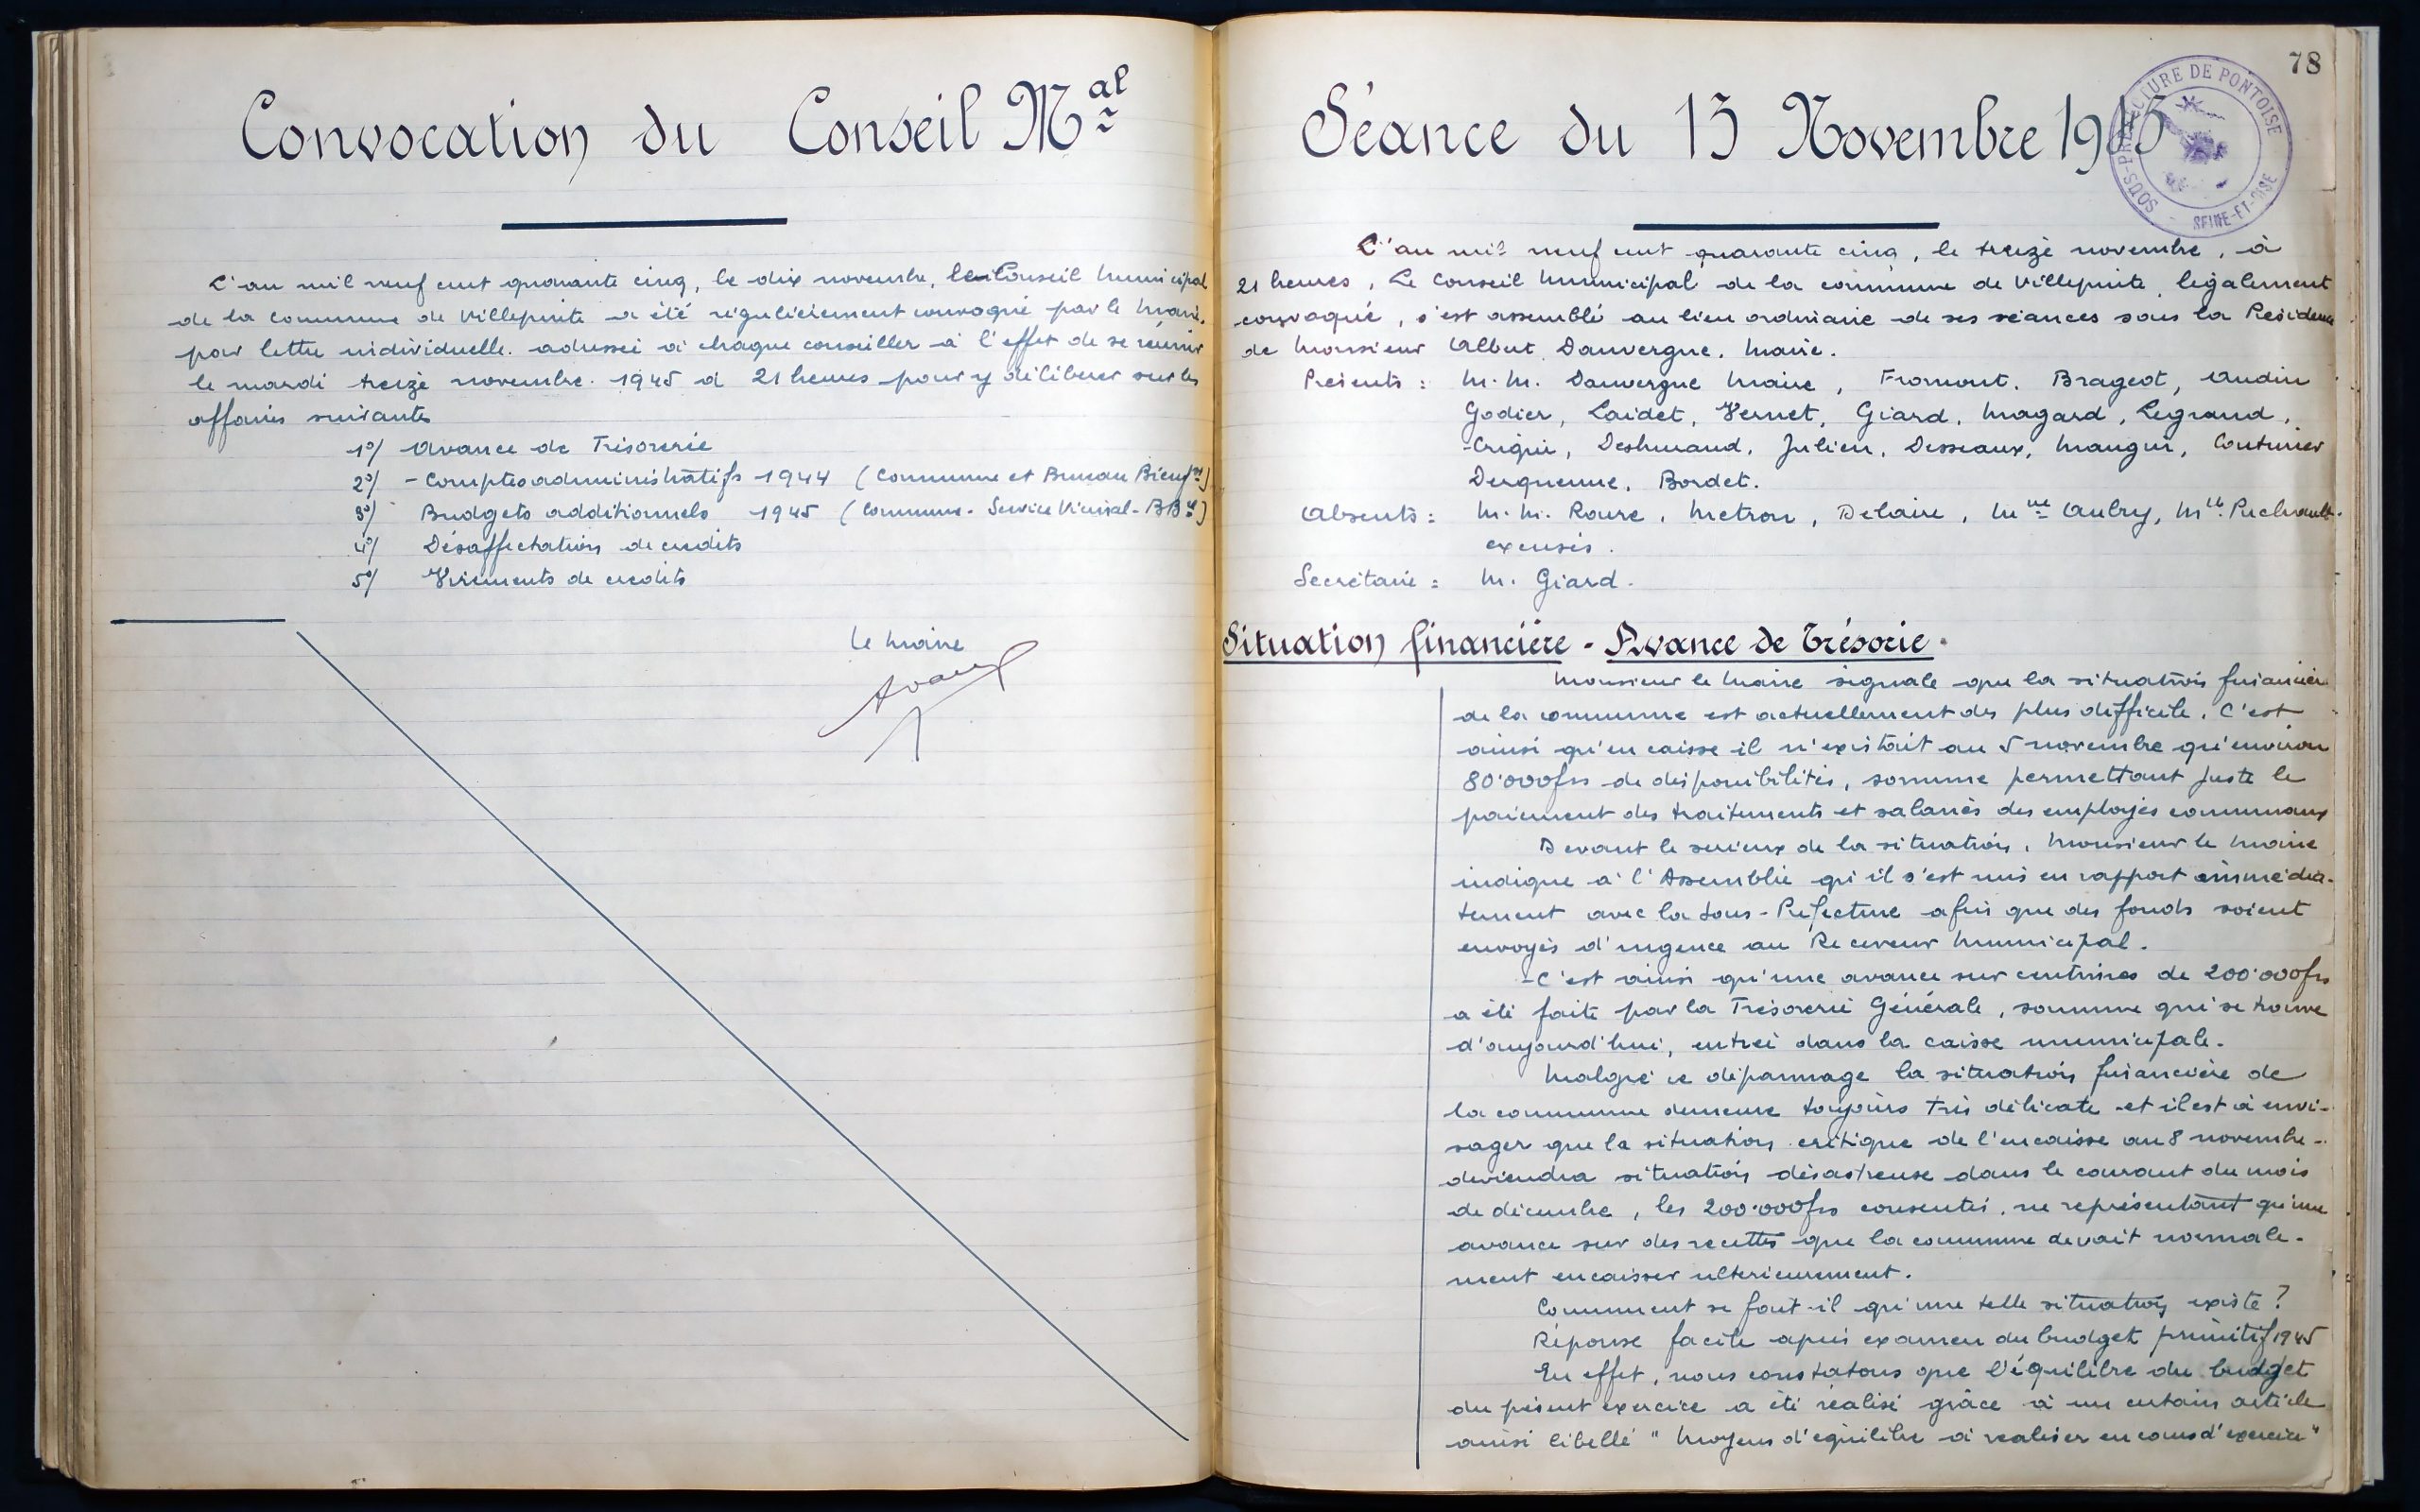 Convocation du Conseil Mal
L'an mil neuf cent quarante cinq, le dix novembre, le Conseil Municipal
de la commune de Villepinte a été régulièrement convoqué par le Maire,
par lettre individuelle adressée à chaque conseiller à l'effet de se réunir
le mardi treize novembre 1945 à 21 heures pour y délibérer sur les
affaires suivantes
1°/ Avance de Trésorerie
2°/ - Comptes administratifs 1944 (Commune et Bureau Bienfce)
3°/ Budgets additionnels 1945 (Commune - Service Vicinal - BBce)
4°/ Désaffectation de crédits
5°/ Virements de crédits
Le Maire
78
SOUS-PRÉFECTURE DE PONTOISE
SEINE-ET-OISE
Séance du 13 Novembre 1945
L'an mil neuf cent quarante cinq, le treize novembre, à
21 heures, Le Conseil Municipal de la commune de Villepinte, légalement
convoqué, s'est assemblé au lieu ordinaire de ses séances sous la Présidence
de Monsieur Albert Dauvergne, Maire.
Présents : M.M. Dauvergne Maire, Fromont, Brageot, Audin
Godier, Laidet, Vernet, Giard, Magard, Legrand,
Criqui, Deshurand, Julien, Desseaux, Mangin, Couturier
Duquenne, Bordet.
Absents : M.M. Roure, Metron, Delaire, Mme Aubry, Mlle
excusés.
Secrétaire : M. Giard.
Situation financière - Avance de Trésorie.
Monsieur le Maire signale que la situation financière
de la commune est actuellement des plus difficile. C'est
ainsi qu'en caisse il n'existait au 5 novembre qu'environ
80.000frs de disponibilités, somme permettant juste le
paiement des traitements et salaires des employés communaux
Devant le sérieux de la situation, Monsieur le Maire
indique à l'Assemblée qu'il s'est mis en rapport immédia-
tement avec la Sous-Préfecture afin que des fonds soient
envoyés d'urgence au Receveur Municipal.
- C'est ainsi qu'une avance sur centimes de 200.000frs
a été faite par la Trésorerie Générale, somme qui se trouve
d'aujourd'hui, entrée dans la caisse municipale.
Malgré ce dépannage la situation financière de
la commune demeure toujours très délicate et il est à envi-
sager que la situation critique de l'encaisse au 8 novembre -
deviendra situation désastreuse dans le courant du mois
de décembre, les 200.000frs consentis, ne représentant qu'une
avance sur des recettes que la commune devait normale-
ment encaisser ultérieurement.
Comment se fait-il qu'une telle situation existe ?
Réponse facile après examen du budget primitif 1945
En effet, nous constatons que l'équilibre du budget
du présent exercice a été réalisé grâce à un certain article
ainsi libellé "Moyens d'équilibre à réaliser en cours d'exercice"